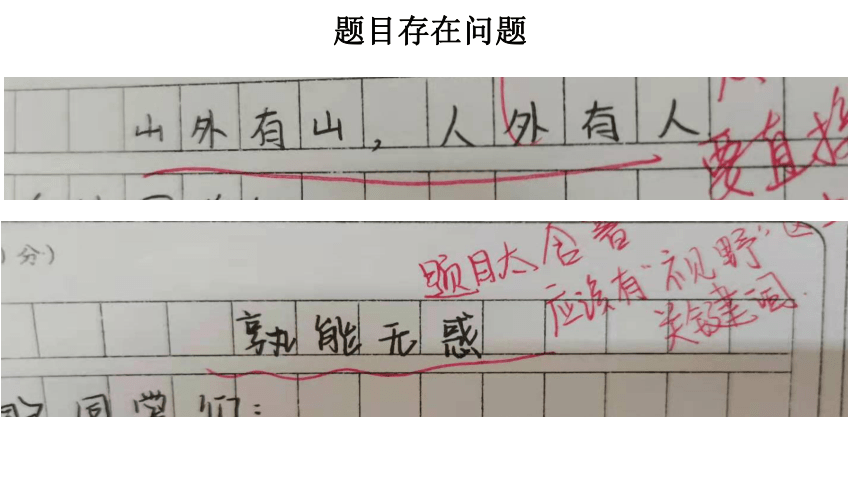 题目存在问题
山外有山，人外有人
要直接
分）
题目太含蓄
应该有“视野”这一
关键词.
孰能无惑
同学们：